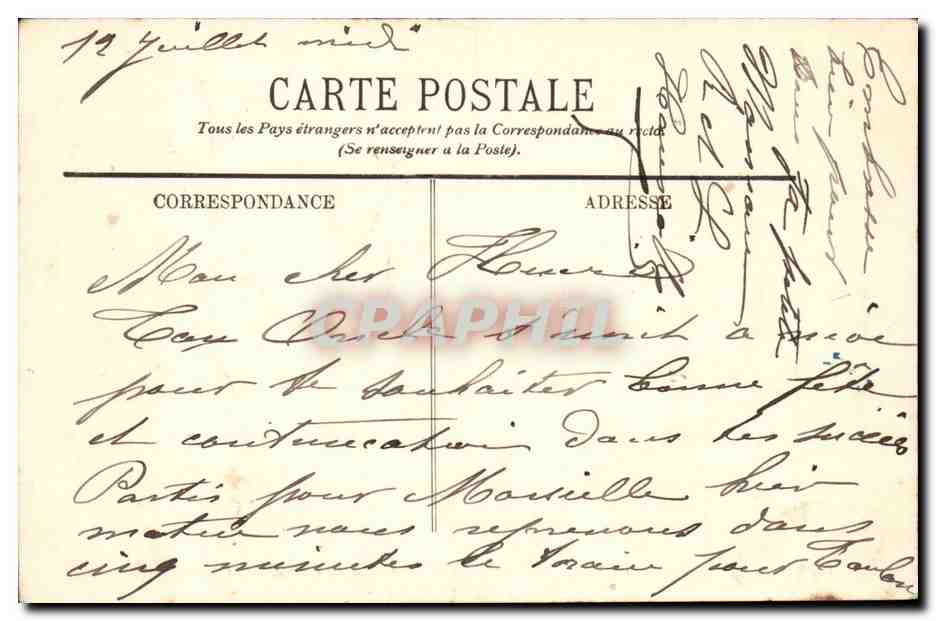 12 Juillet midi
CARTE POSTALE
Tous les Pays étrangers n'acceptent pas la Correspondance au recto.
(Se renseigner a la Poste).
CORRESPONDANCE
ADRESSE
Mon cher Henri
Ton Oncle s'unit a moi
pour te souhaiter bonne fête
et continuation dans tes succès
Partis pour Marseille hier
matin nous reprenons dans
cinq minutes le train pour Toulon
CPARAMA
Embrasse
bien pour
nous
Maman
ta petite